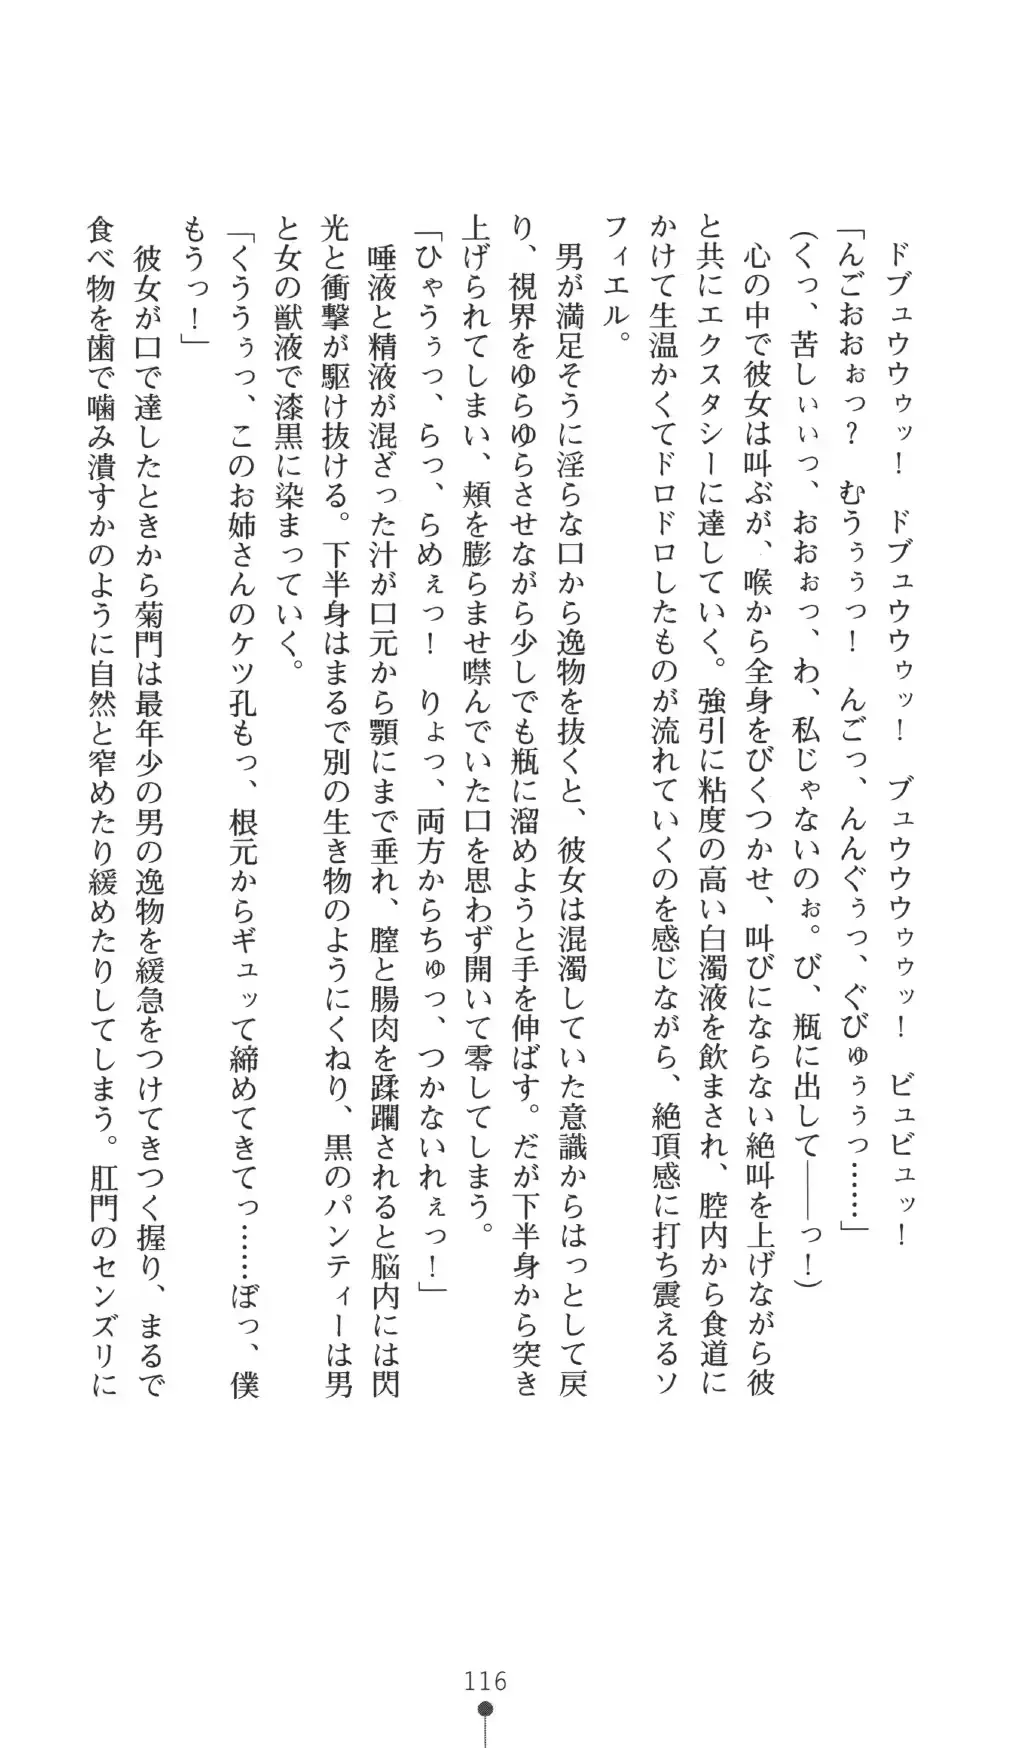 ドブュウウゥッ！　ドブュウウゥッ！　ブュウウウゥゥッ！　ビュビュッ！
「んごおおぉっ？　むうぅぅっ！　んごっ、んんぐぅっ、ぐびゅぅぅっ……」
（くっ、苦しぃぃっ、おおぉっ、わ、私じゃないのぉ。び、瓶に出して――っ！）
心の中で彼女は叫ぶが、喉から全身をびくつかせ、叫びにならない絶叫を上げながら彼
と共にエクスタシーに達していく。強引に粘度の高い白濁液を飲まされ、腔内から食道に
かけて生温かくてドロドロしたものが流れていくのを感じながら、絶頂感に打ち震えるソ
フィエル。
男が満足そうに淫らな口から逸物を抜くと、彼女は混濁していた意識からはっとして戻
り、視界をゆらゆらさせながら少しでも瓶に溜めようと手を伸ばす。だが下半身から突き
上げられてしまい、頬を膨らませ噤んでいた口を思わず開いて零してしまう。
「ひゃうぅっ、らっ、らめぇっ！　りょっ、両方からちゅっ、つかないれぇっ！」
唾液と精液が混ざった汁が口元から顎にまで垂れ、膣と腸肉を蹂躙されると脳内には閃
光と衝撃が駆け抜ける。下半身はまるで別の生き物のようにくねり、黒のパンティーは男
と女の獣液で漆黒に染まっていく。
「くううぅっ、このお姉さんのケツ孔もっ、根元からギュッて締めてきてっ……ぼっ、僕
もうっ！」
彼女が口で達したときから菊門は最年少の男の逸物を緩急をつけてきつく握り、まるで
食べ物を歯で噛み潰すかのように自然と窄めたり緩めたりしてしまう。肛門のセンズリに
116